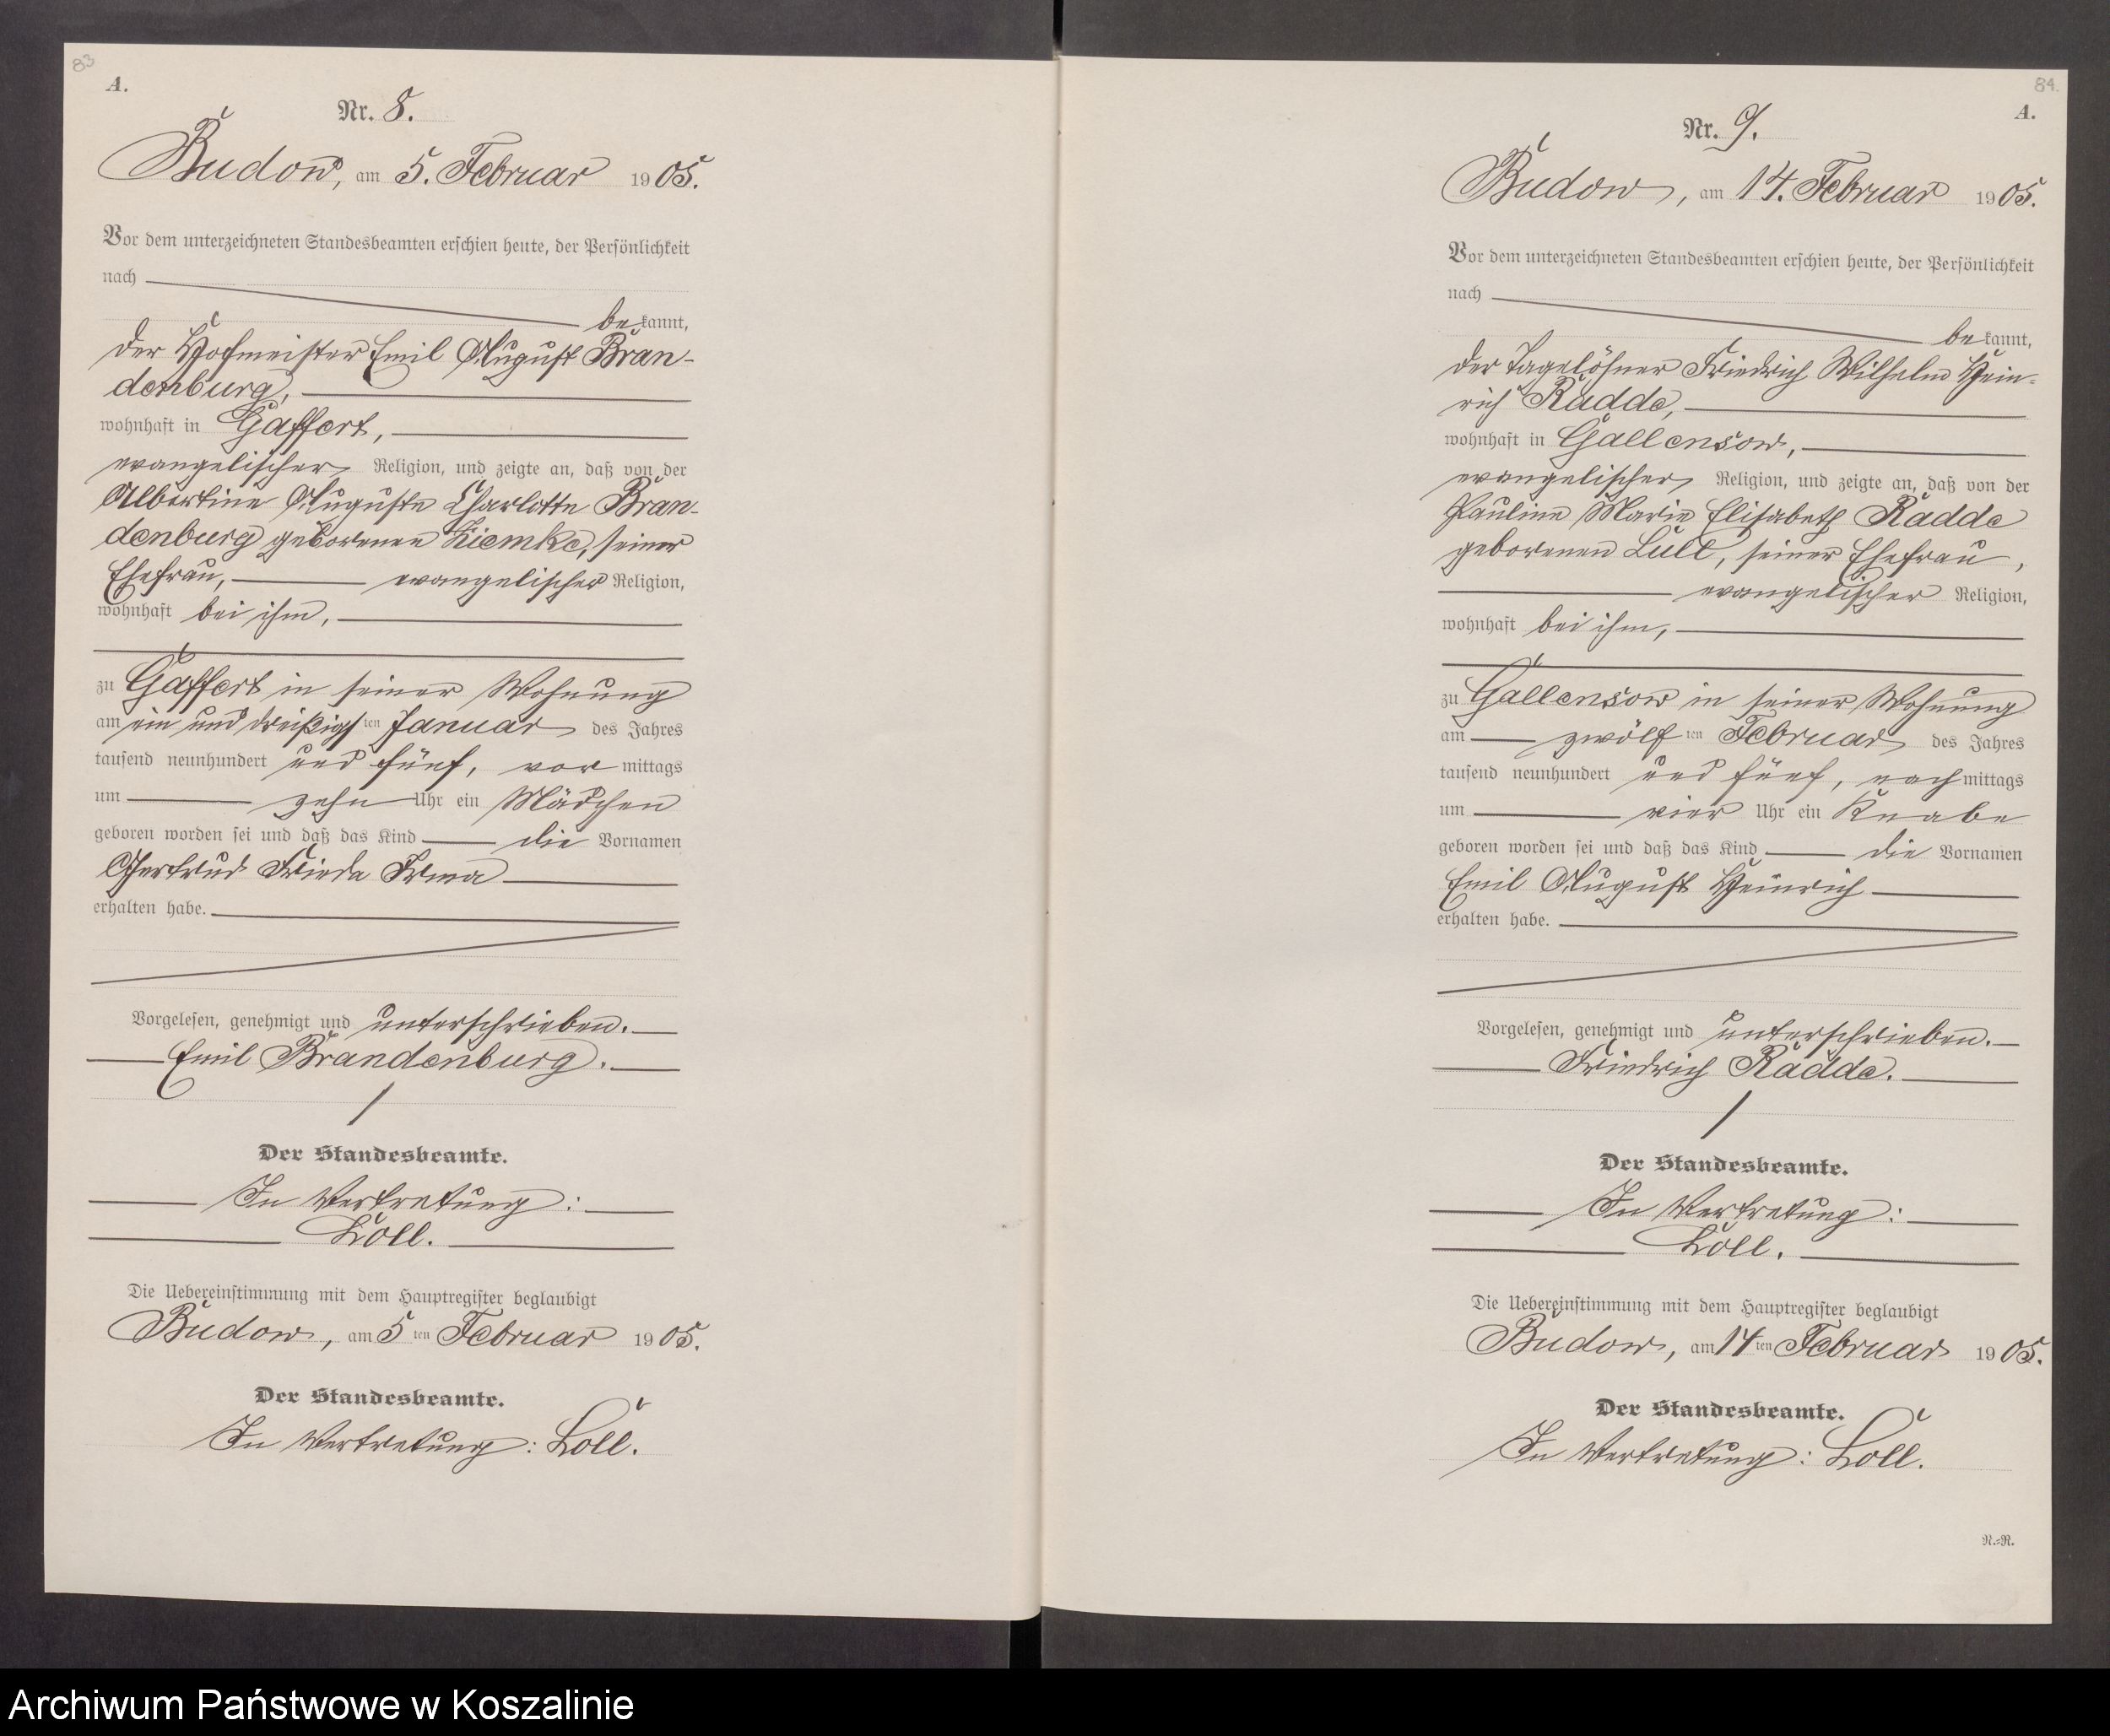 83
A.
Nr. 8.
Budow, am 5. Februar 1905.
Vor dem unterzeichneten Standesbeamten erschien heute, der Persönlichkeit
nach
bekannt,
der Hofmeister Emil August Bran-
denburg,
wohnhaft in Gaffert,
evangelischer Religion, und zeigte an, daß von der
Albertine Auguste Charlotte Bran-
denburg geborenen Ziemke, seiner
Ehefrau, evangelischer Religion,
wohnhaft bei ihm,
zu Gaffert in seiner Wohnung
am ein und dreißigsten Januar des Jahres
tausend neunhundert und fünf, vormittags
um zehn Uhr ein Mädchen
geboren worden sei und daß das Kind die Vornamen
Gertrud Frieda Irma
erhalten habe.
Vorgelesen, genehmigt und unterschrieben.
Emil Brandenburg.
Der Standesbeamte.
In Vertretung:
Loll.
Die Uebereinstimmung mit dem Hauptregister beglaubigt
Budow, am 5ten Februar 1905.
Der Standesbeamte.
In Vertretung: Loll.
84.
A.
Nr. 9.
Budow, am 14. Februar 1905.
Vor dem unterzeichneten Standesbeamten erschien heute, der Persönlichkeit
nach
bekannt,
der Tagelöhner Friedrich Wilhelm Hein-
rich Radde,
wohnhaft in Gallensow,
evangelischer Religion, und zeigte an, daß von der
Pauline Marie Elisabeth Radde
geborenen Lull, seiner Ehefrau,
evangelischer Religion,
wohnhaft bei ihm,
zu Gallensow in seiner Wohnung
am zwölften Februar des Jahres
tausend neunhundert und fünf, nachmittags
um vier Uhr ein Knabe
geboren worden sei und daß das Kind die Vornamen
Emil August Heinrich
erhalten habe.
Vorgelesen, genehmigt und unterschrieben.
Friedrich Radde.
Der Standesbeamte.
In Vertretung:
Loll.
Die Uebereinstimmung mit dem Hauptregister beglaubigt
Budow, am 14ten Februar 1905.
Der Standesbeamte.
In Vertretung: Loll.
N.-R.
Archiwum Państwowe w Koszalinie